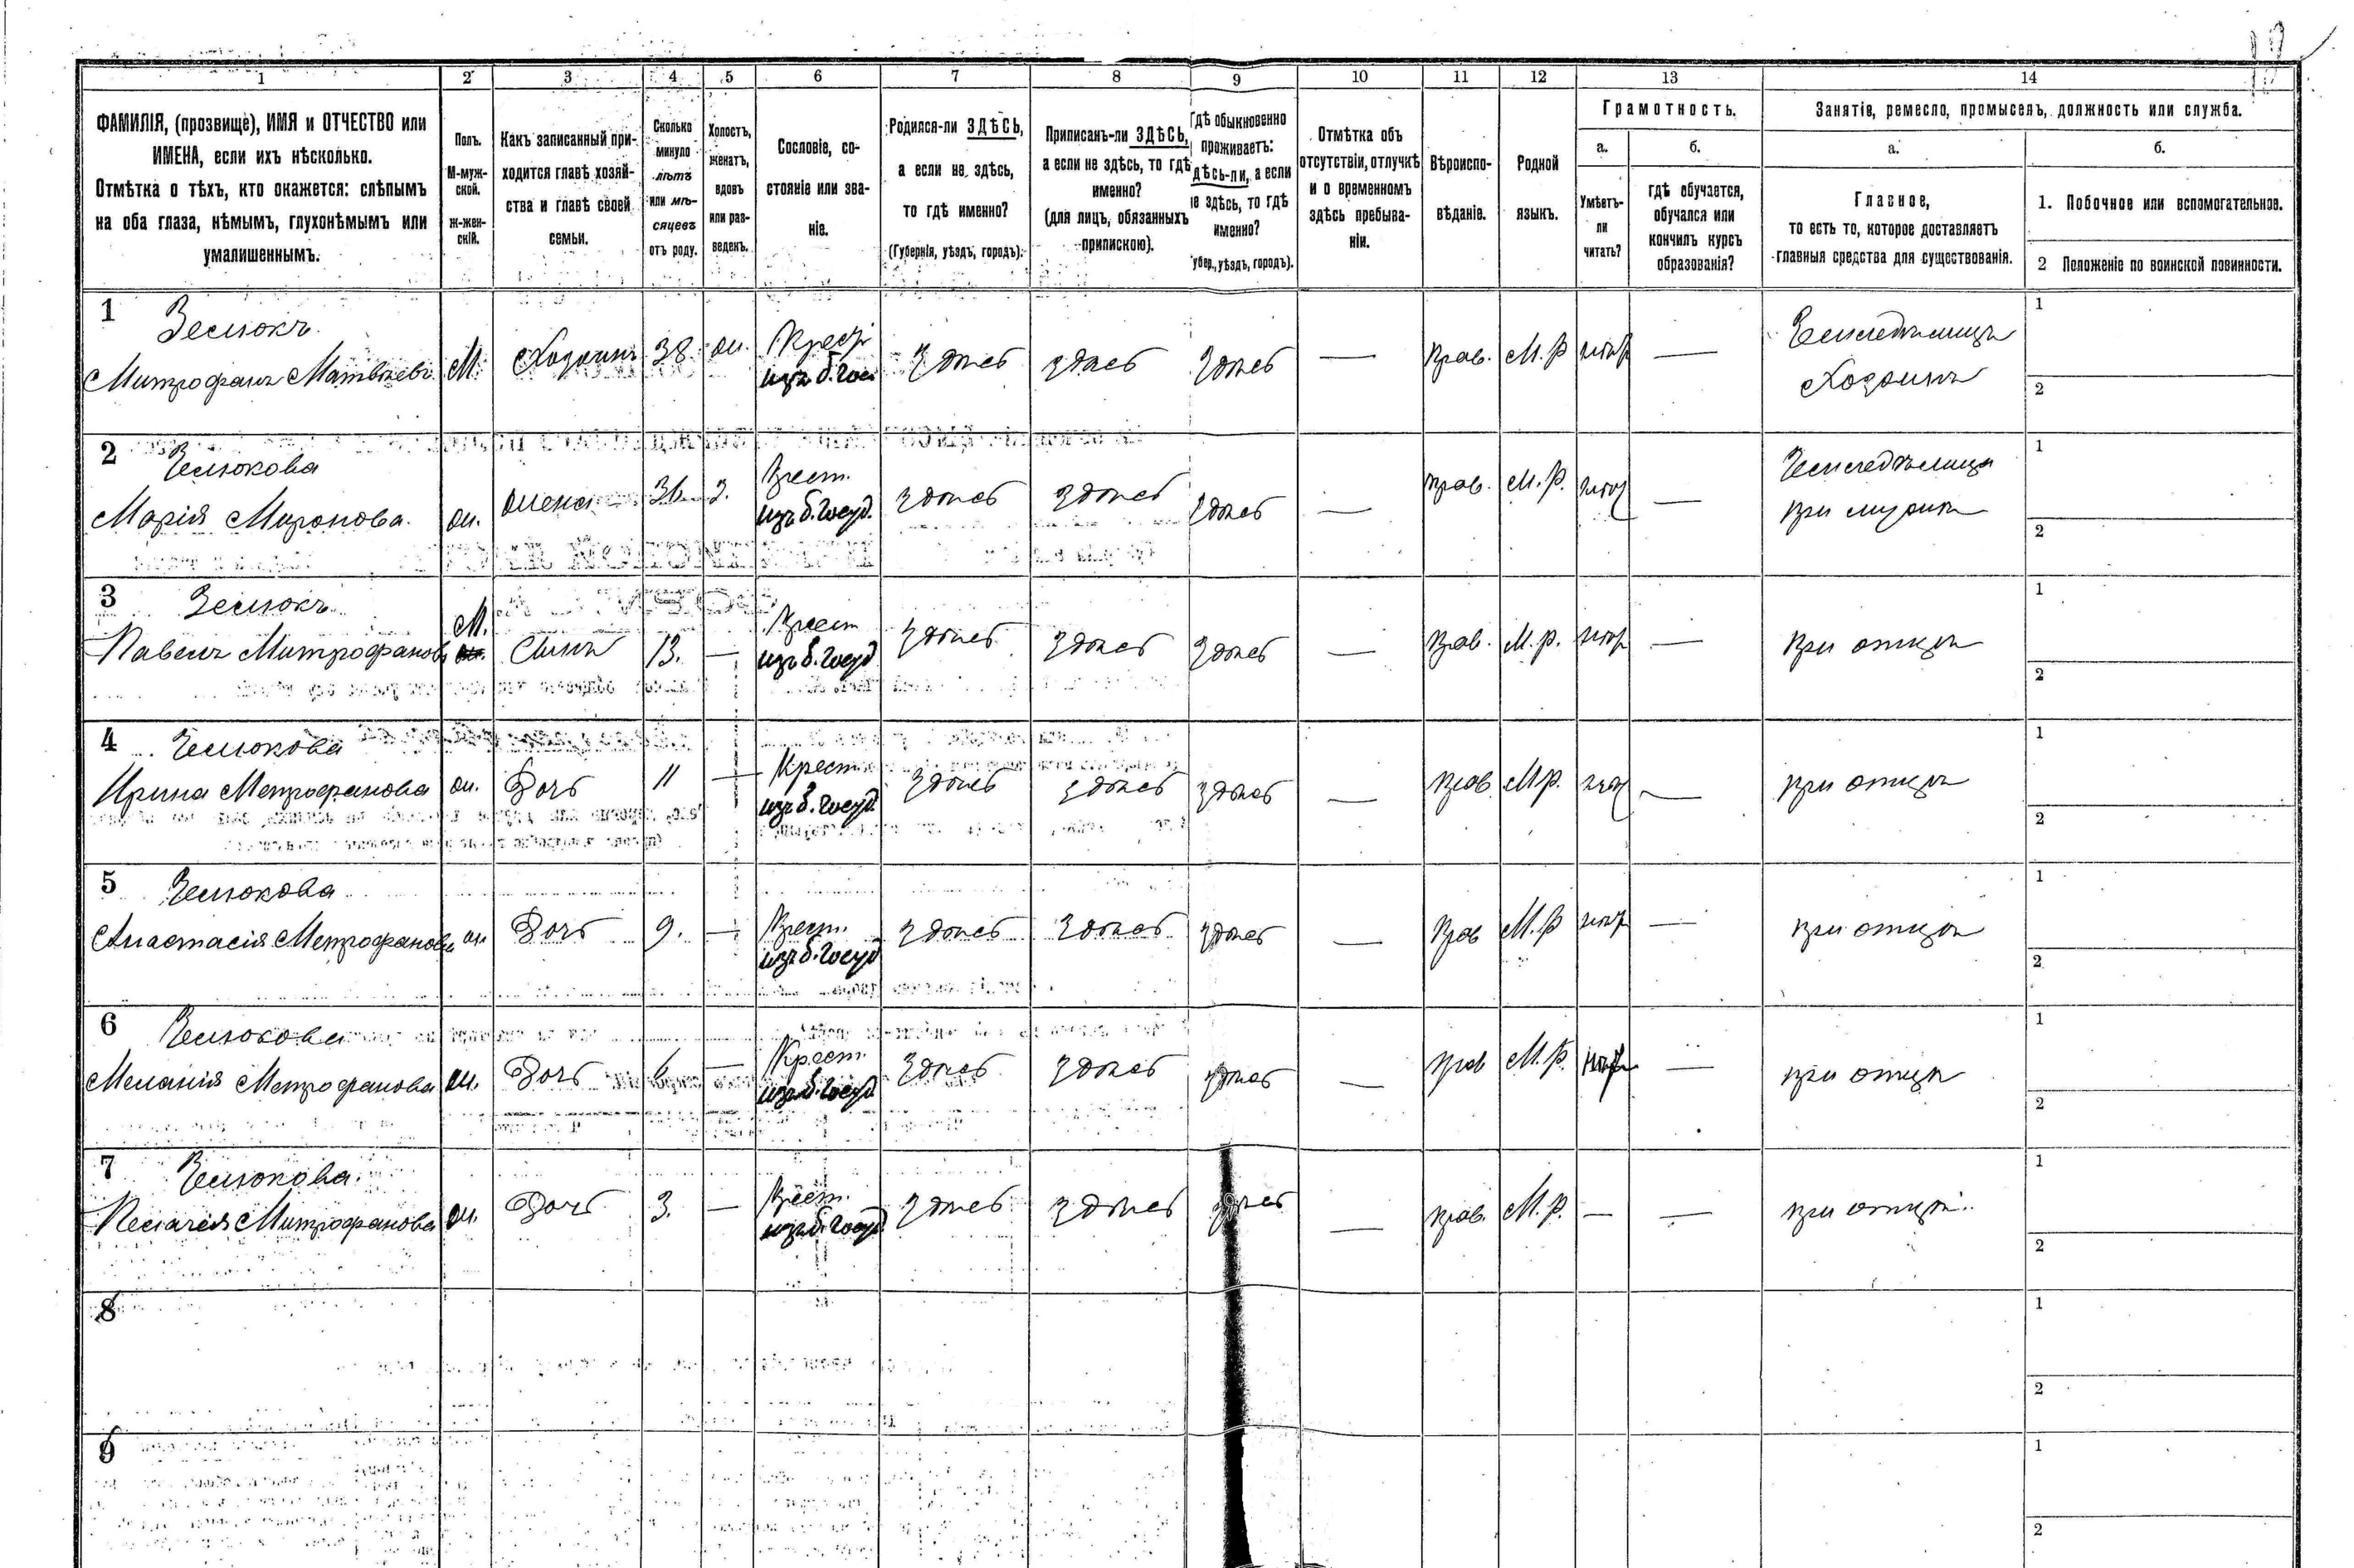 1 2 3 4 5 6 7 8 9 10 11 12 13 14
ФАМИЛІЯ, (прозвище), ИМЯ и ОТЧЕСТВО или
ИМЕНА, если ихъ нѣсколько.
Отмѣтка о тѣхъ, кто окажется: слѣпымъ
на оба глаза, нѣмымъ, глухонѣмымъ или
умалишеннымъ.
Полъ.
М-муж-
ской.
Ж-жен-
скій.
Какъ записанный при-
ходится главѣ хозяй-
ства и главѣ своей
семьи.
Сколько
минуло
лѣтъ
или мѣ-
сяцевъ
отъ роду.
Холостъ,
женатъ,
вдовъ
или раз-
веденъ.
Сословіе, со-
стояніе или зва-
ніе.
Родился-ли ЗДѢСЬ,
а если не здѣсь,
то гдѣ именно?
(Губернія, уѣздъ, городъ).
Приписанъ-ли ЗДѢСЬ,
а если не здѣсь, то гдѣ
именно?
(для лицъ, обязанныхъ
припискою).
Гдѣ обыкновенно
проживаетъ:
дѣсь-ли, а если
не здѣсь, то гдѣ
именно?
убер., уѣздъ, городъ).
Отмѣтка объ
отсутствіи, отлучкѣ
и о временномъ
здѣсь пребыва-
ніи.
Вѣроиспо-
вѣданіе.
Родной
языкъ.
Грамотность.
а.
Умѣетъ-
ли
читать?
б.
гдѣ обучается,
обучался или
кончилъ курсъ
образованія?
Занятіе, ремесло, промыселъ, должность или служба.
а.
Главное,
то есть то, которое доставляетъ
главныя средства для существованія.
б.
1. Побочное или вспомогательное.
2 Положеніе по воинской повинности.
1 Земюкъ
Митрофанъ Матвѣевъ М. Хозяинъ 38 ж. Крест
изъ б. Гос здѣсь здѣсь здѣсь — Прав. М. Р нтр — Земледѣлецъ
Хозяинъ
1
2
2 Земюкова
Марія Миронова. ж. жена 36 З. Крест.
изъ б. Госуд. здѣсь здѣсь здѣсь — Прав. М. Р. нтр — Земледѣлица
при мужѣ
1
2
3 Земюкъ
Павелъ Митрофановъ М. Сынъ 13. — Крест
изъ б. Госуд здѣсь здѣсь здѣсь — Прав. М. Р. нтр — при отцѣ
1
2
4 Земюкова
Ирина Метрофанова ж. Дочь 11 — Крест
изъ б. Госуд здѣсь здѣсь здѣсь — Прав М Р. нтр — при отцѣ
1
2
5 Земюкова
Анастасія Метрофанова ж Дочь 9. — Крест.
изъ б. Госуд здѣсь здѣсь здѣсь — Прав М. Р нтр — при отцѣ
1
2
6 Земюкова
Меланія Метрофанова ж. Дочь 6 — Крест.
изъ б. Госуд здѣсь здѣсь здѣсь — Прав М. Р. — при отцѣ
1
2
7 Земюкова.
Пелагея Митрофанова ж. Дочь 3. — Крест.
изъ б. Госуд здѣсь здѣсь здѣсь — Прав. М. Р. — — при отцѣ.
1
2
8
1
2
9
1
2